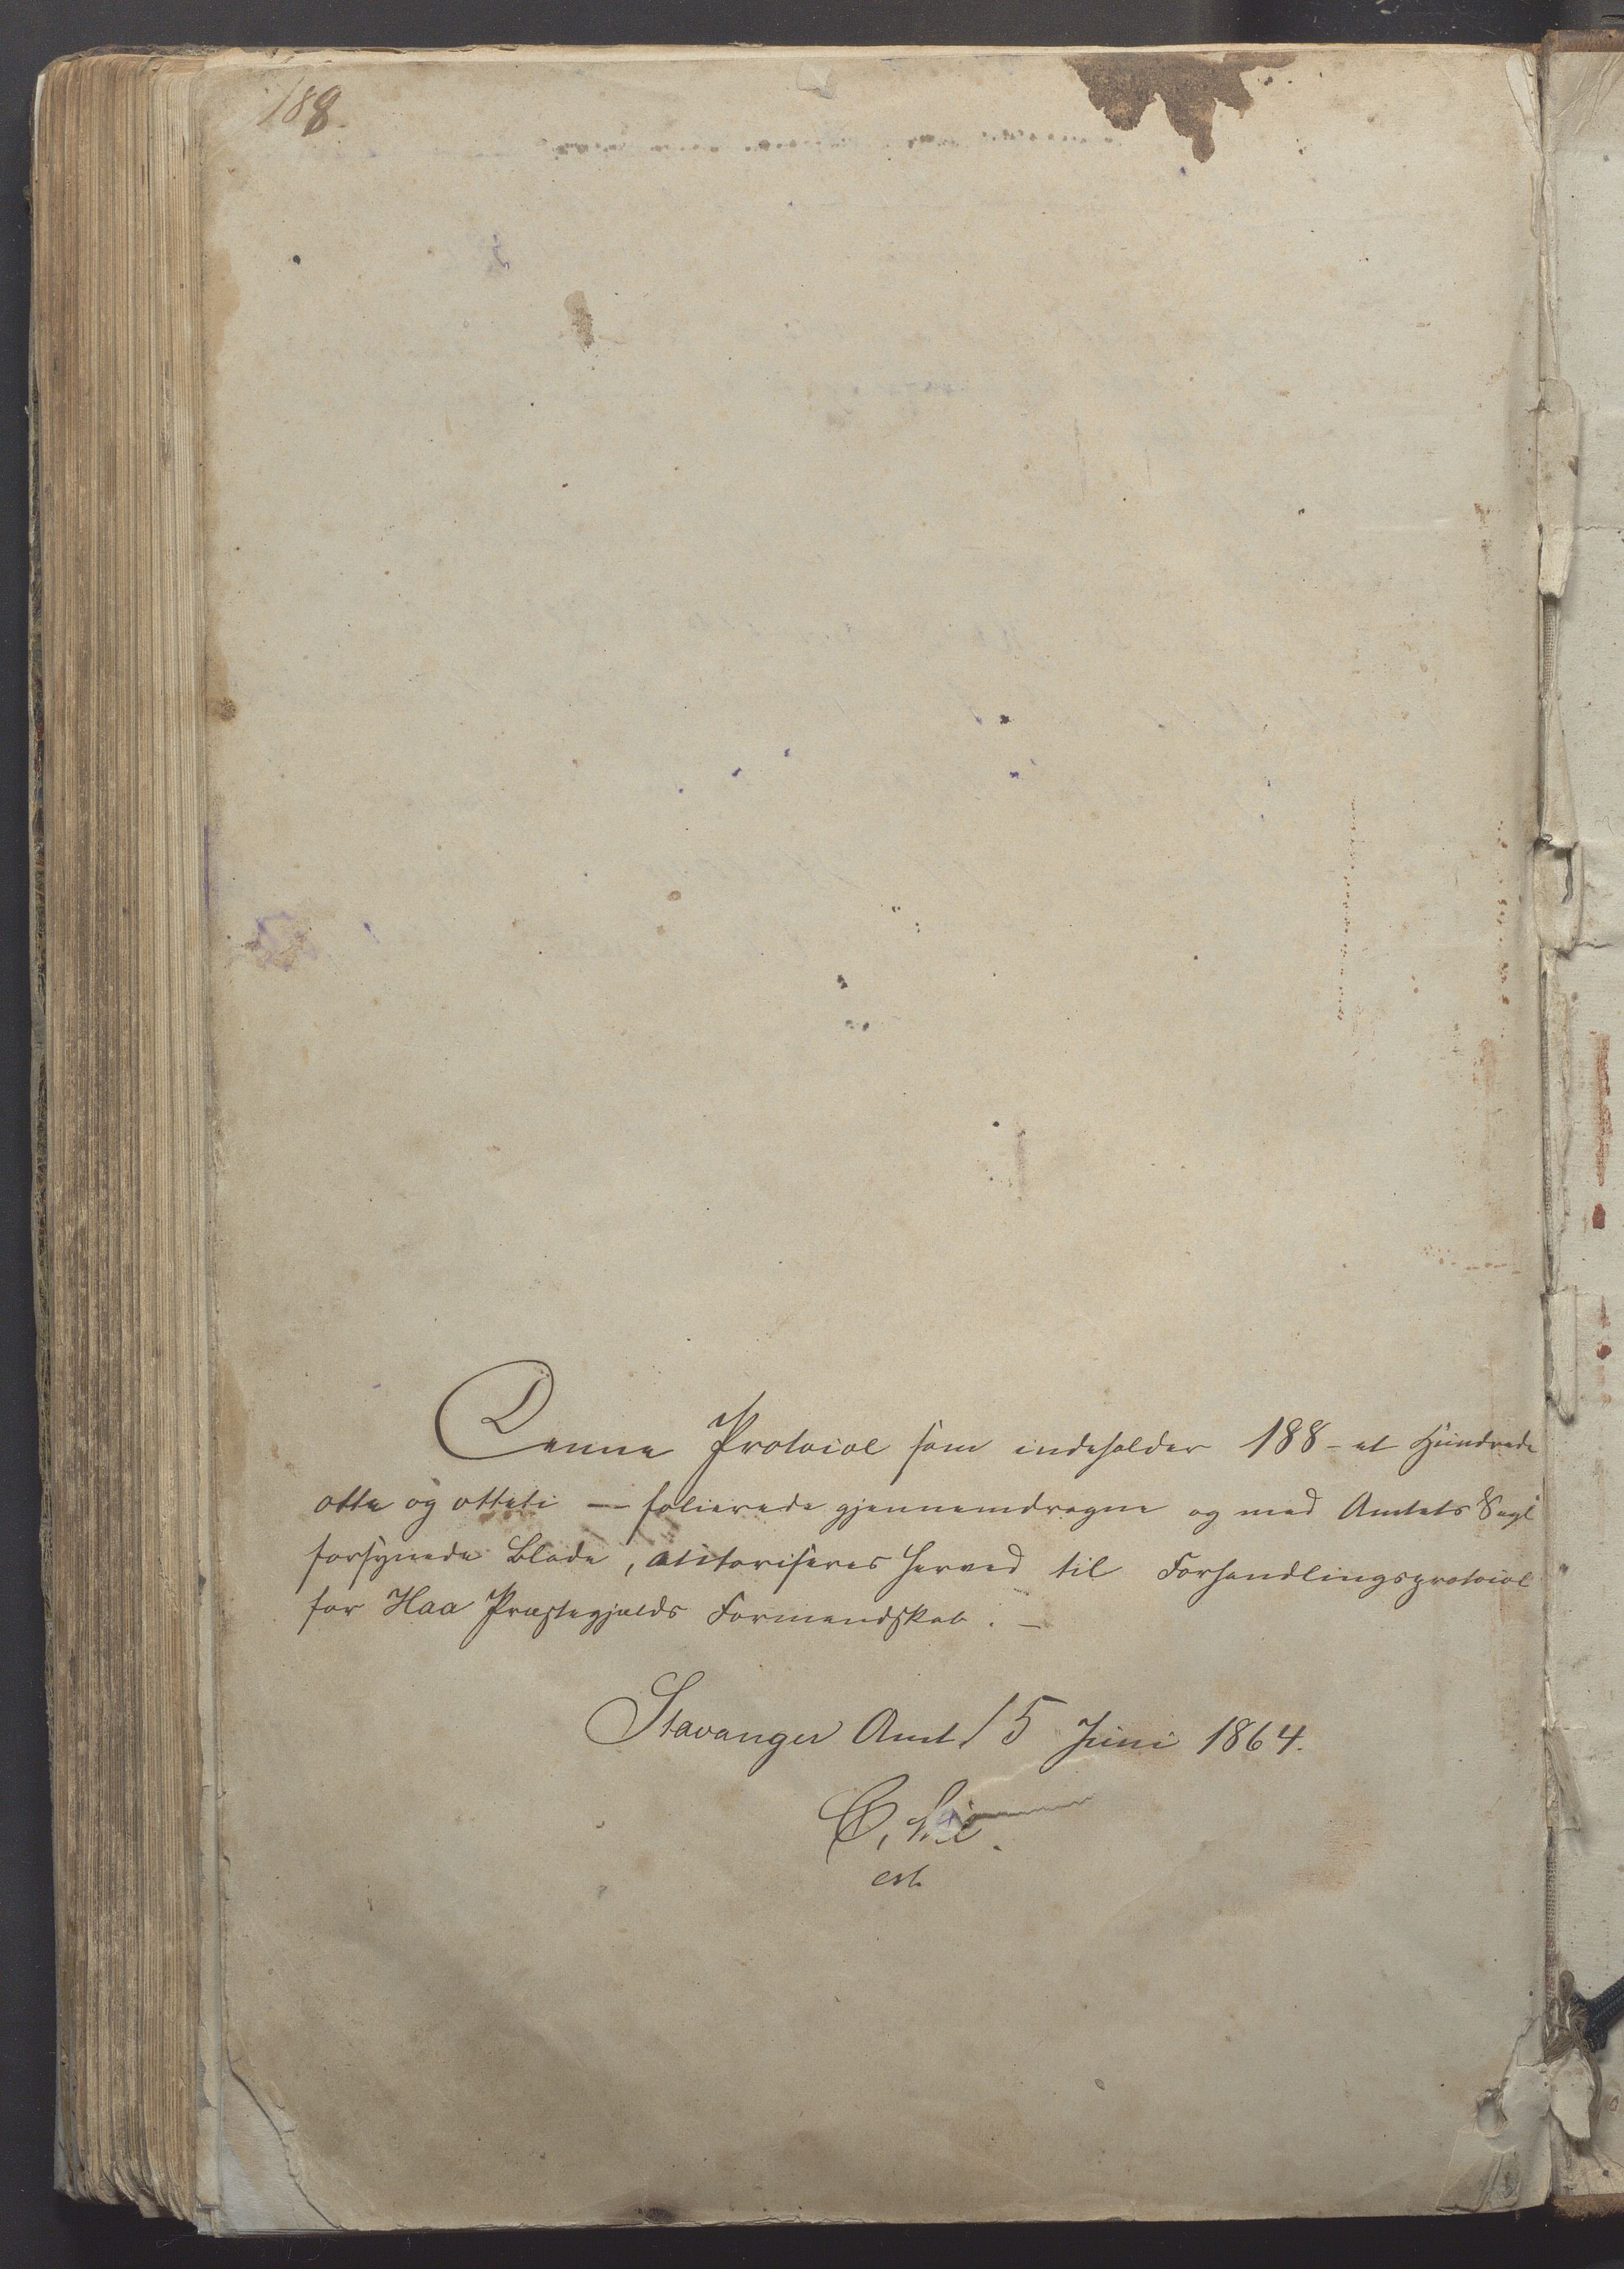 188.
Denne Protocol som indeholder 188 - et Hundrede
otte og otteti — folierede gjennemdragne og med Amtets Segl
forsynede Blade, autoriseres herved til Forhandlingsprotocol
for Haa Præstegjælds Formandskab. —
Stavanger Amt 15 Juni 1864.